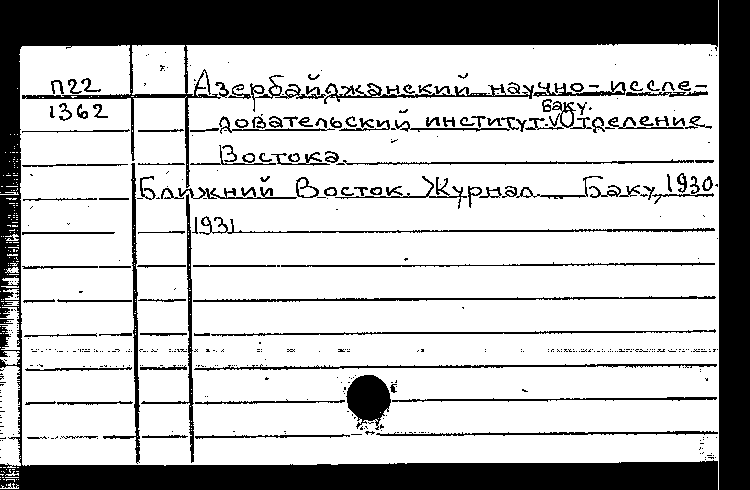 П22
1362
Азербайджанский научно-иссле-
довательский институт. Баку. Отделение
Востока.
Ближний Восток. Журнал. Баку, 1930-
1931.